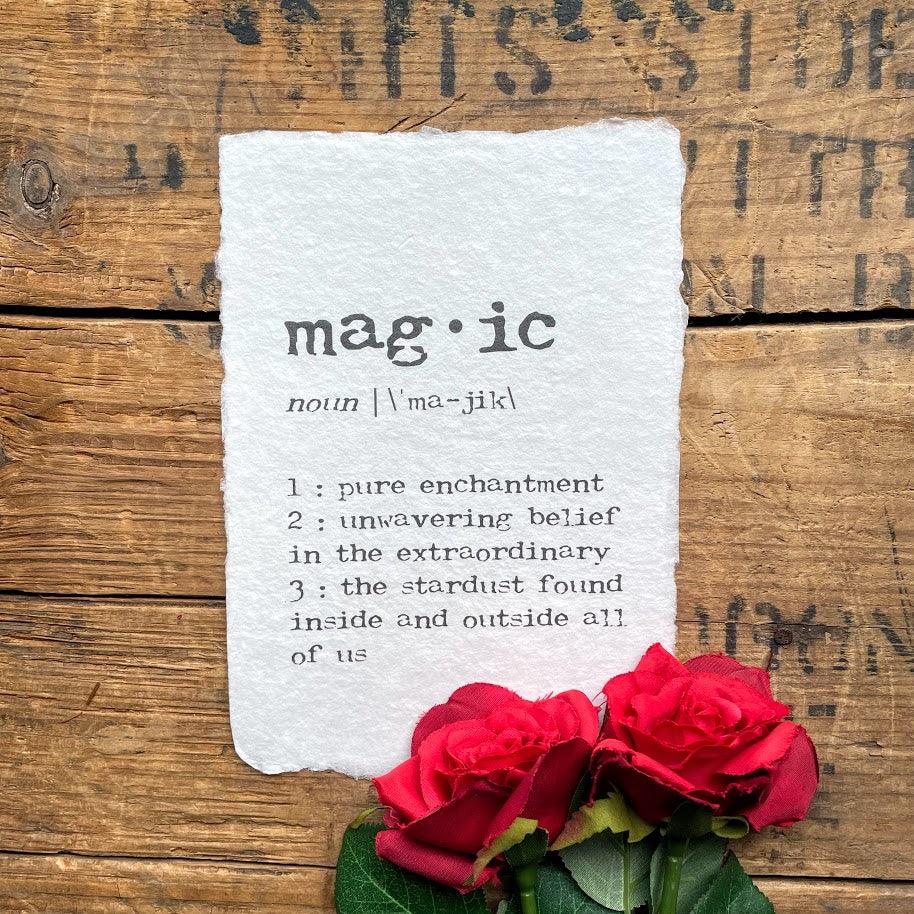 mag·ic
noun | \ˈma-jik\
1 : pure enchantment
2 : unwavering belief
in the extraordinary
3 : the stardust found
inside and outside all
of us